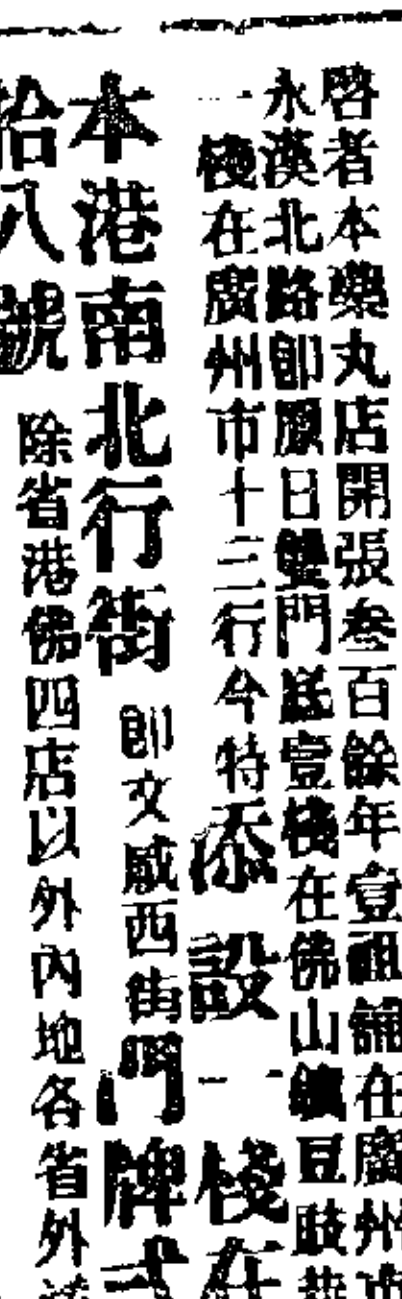 啓者本藥丸店開張叁百餘年壹祖舖在廣州市
永漢北路卽原日雙門底壹棧在佛山豆豉
一棧在廣州市十三行今特添設一棧在
本港南北行街卽文咸西街門牌弍
拾八號除省港佛四店以外內地各省外